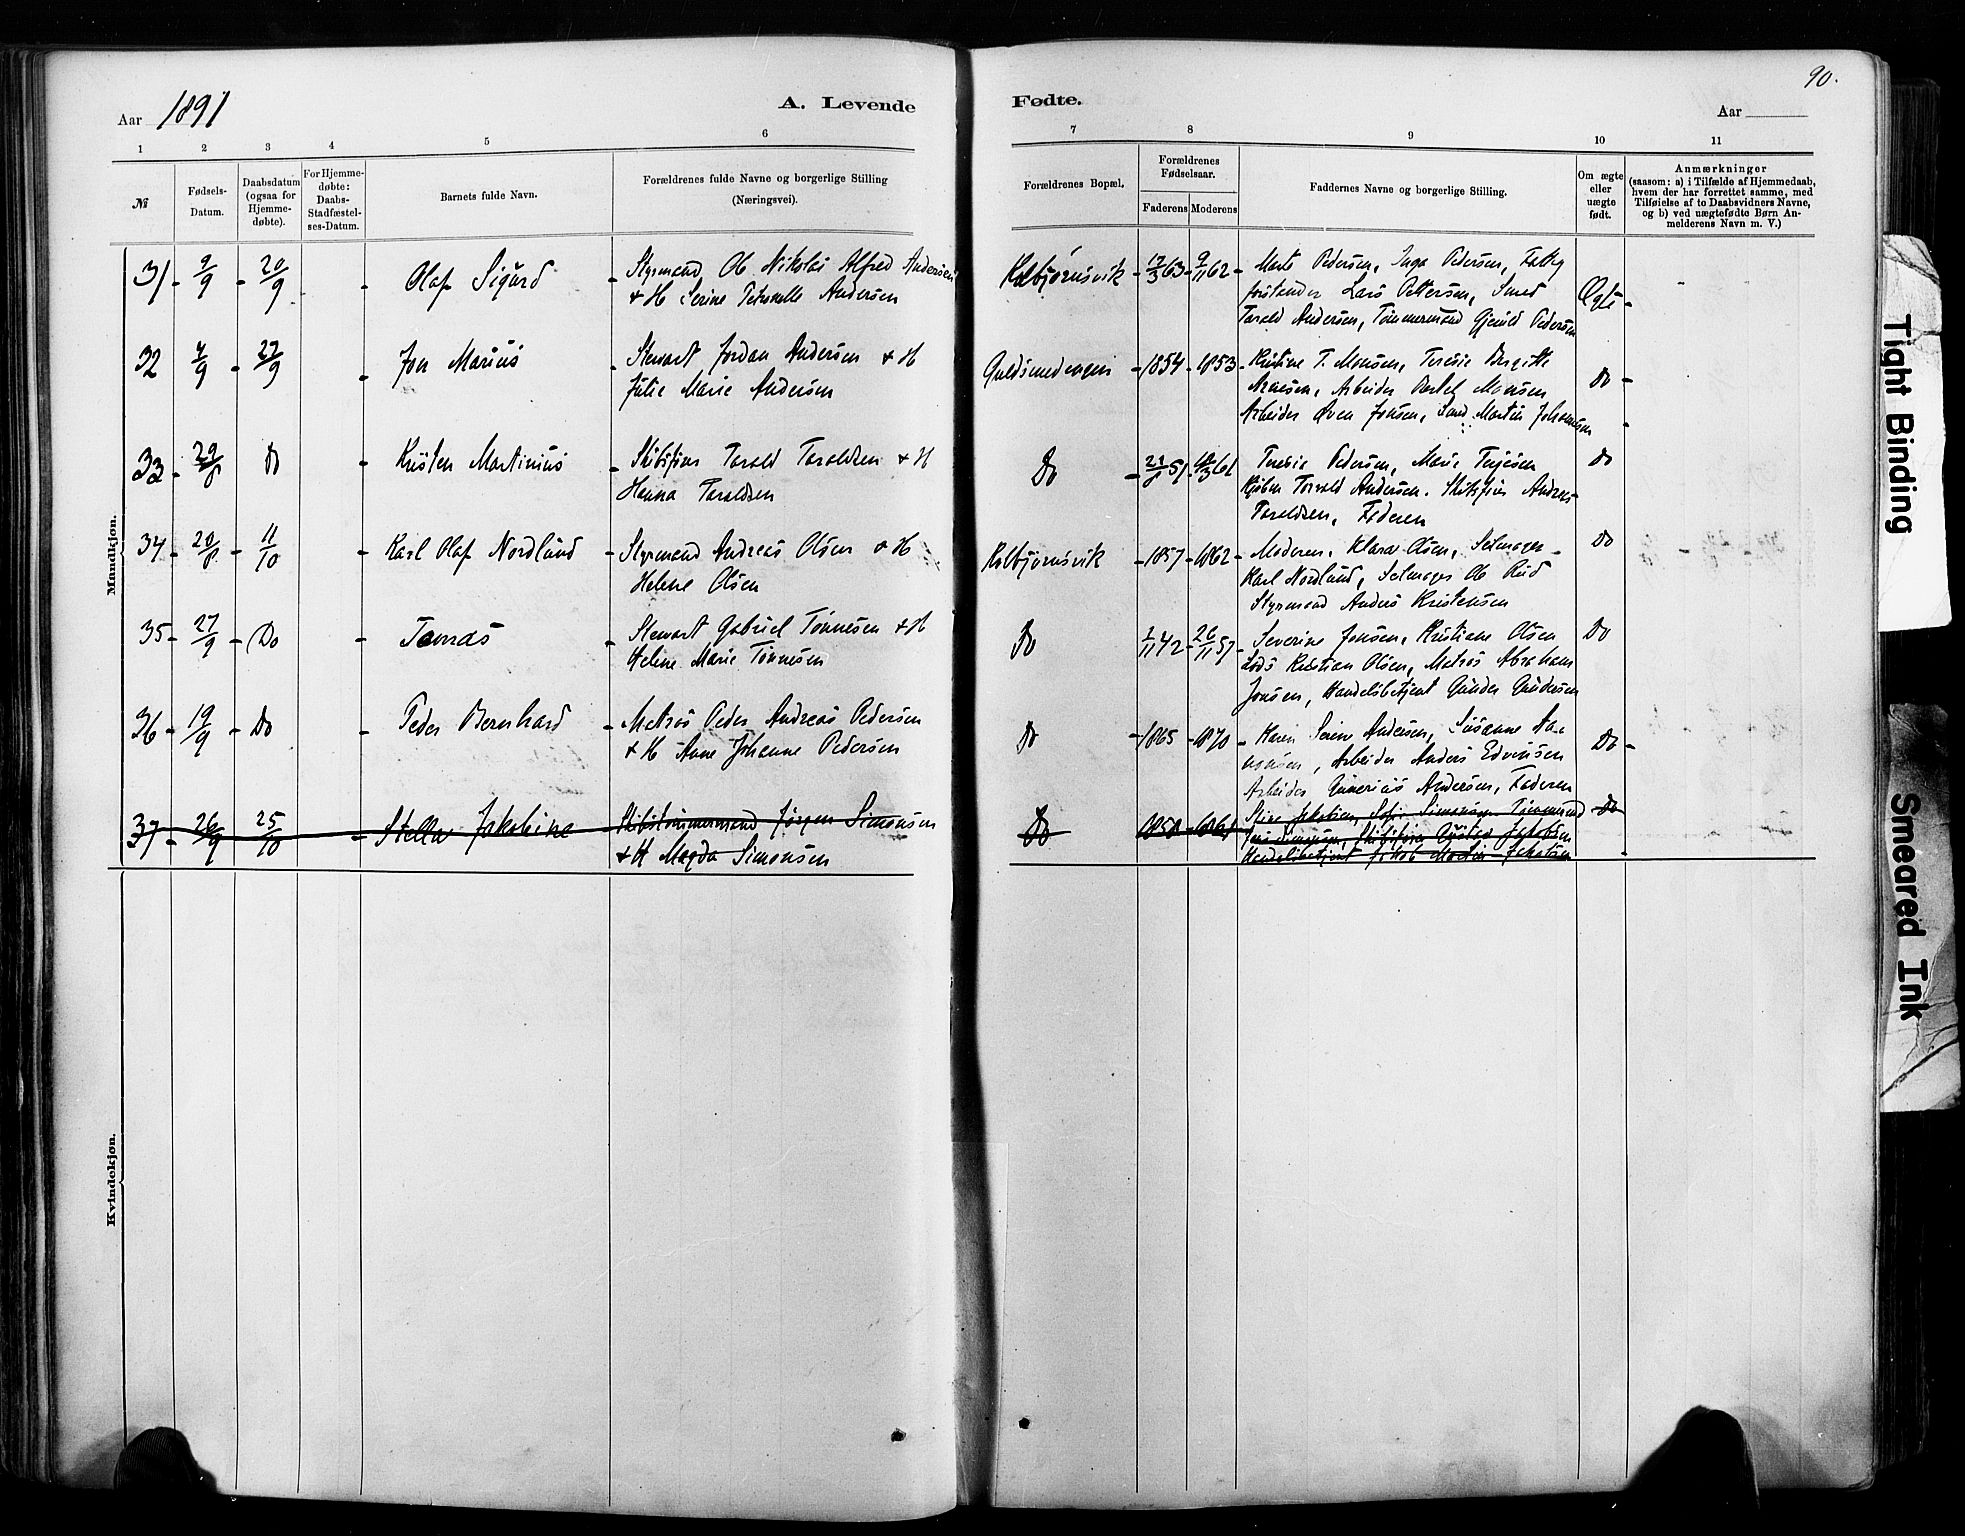 90.
Aar 1891 A. Levende Fødte. Aar
1 2 3 4 5 6 7 8 9 10 11
№
Fødsels-
Datum.
Daabsdatum
(ogsaa for
Hjemme-
døbte).
For Hjemme-
døbte:
Daabs-
Stadfæstel-
ses-Datum.
Barnets fulde Navn.
Forældrenes fulde Navne og borgerlige Stilling
(Næringsvei).
Forældrenes Bopæl.
Forældrenes
Fødselsaar.
Faderens Moderens
Faddernes Navne og borgerlige Stilling.
Om ægte
eller
uægte
født.
Anmærkninger
(saasom: a) i Tilfælde af Hjemmedaab,
hvem der har forrettet samme, med
Tilføielse af to Daabsvidners Navne,
og b) ved uægtefødte Børn An-
melderens Navn m. V.)
Mandkjøn.
31 - 9/9 - 20/9 - Olaf Sigurd - Styrmand Ole Nikolai Alfred Andersen
& H Serine Petronelle Andersen
Kolbjørnsvik - 12/3 63 - 9/11 62 - Marte Pedersen, Inga Pedersen, Fattig
forstander Lars Pettersen, Smed
Tarald Andersen, Tømmermand Gjeruld Pedersen
Ægte -
32 4/9 - 27/9 - Jon Marius - Stewart Jordan Andersen & H
Julie Marie Andersen
Guldsmedvogen - 1854 - 1853 - Kristine T. Monsen, Teresie Bergitte
Arnesen, Arbeider Bertel Monsen
Arbeider Even Jonsen, Smed Martin Johannesen
Do -
33 - 29/8 Do - Kristen Martinius - Skibsfører Tarald Taraldsen & H
Hanna Taraldsen
Do - 21/8 51 - 18/3 61 - Teresie Pedersen, Marie Terjesen
Kjøbm Torvald Andersen. Skibsfører Andreas
Taraldsen, Faderen
Do
34 - 20/8 - 11/10 - Karl Olaf Nordlund - Styrmand Andreas Olsen & H
Helene Olsen
Kolbjørnsvik - 1857 - 1862 - Moderen, Klara Olsen, Seilmager
Karl Nordlund, Seilmager Ole Rud
Styrmand Anders Kristensen
Do
35 - 27/9 - Do - Tomas - Stewart Gabriel Tønnesen & H
Heline Marie Tønnesen
Do 1/11 42 - 26/11 57 - Severine Jensen, Kristiane Olsen
Lods Kristian Olsen, Matros Abraham
Jonsen, Handelsbetjent Gunder Gundersen
Do
36 - 19/9 - Do - Peder Bernhard - Matros Peder Andreas Pedersen
& H Anne Johanne Pedersen
Do - 1865 - 1870 - Karen Serine Andersen, Susanne Aa-
nonsen, Arbeider Anders Edvinsen
Arbeider Gunerius Andersen, Faderen
Do -
37 - 26/9 25/10 - Stella Jakobine - Skibstømmermand Jørgen Simonsen
& H Magda Simonsen
Do 1858 - 1861 Stine Jakobsen, Sofie Simonsen, Tømmermand
Jens Simonsen, Skibsfører Gustav Jakobsen
Handelsbetjent Jakob Martin Jakobsen
Do
Kvindekjøn.
Tight Binding
Smeared Ink